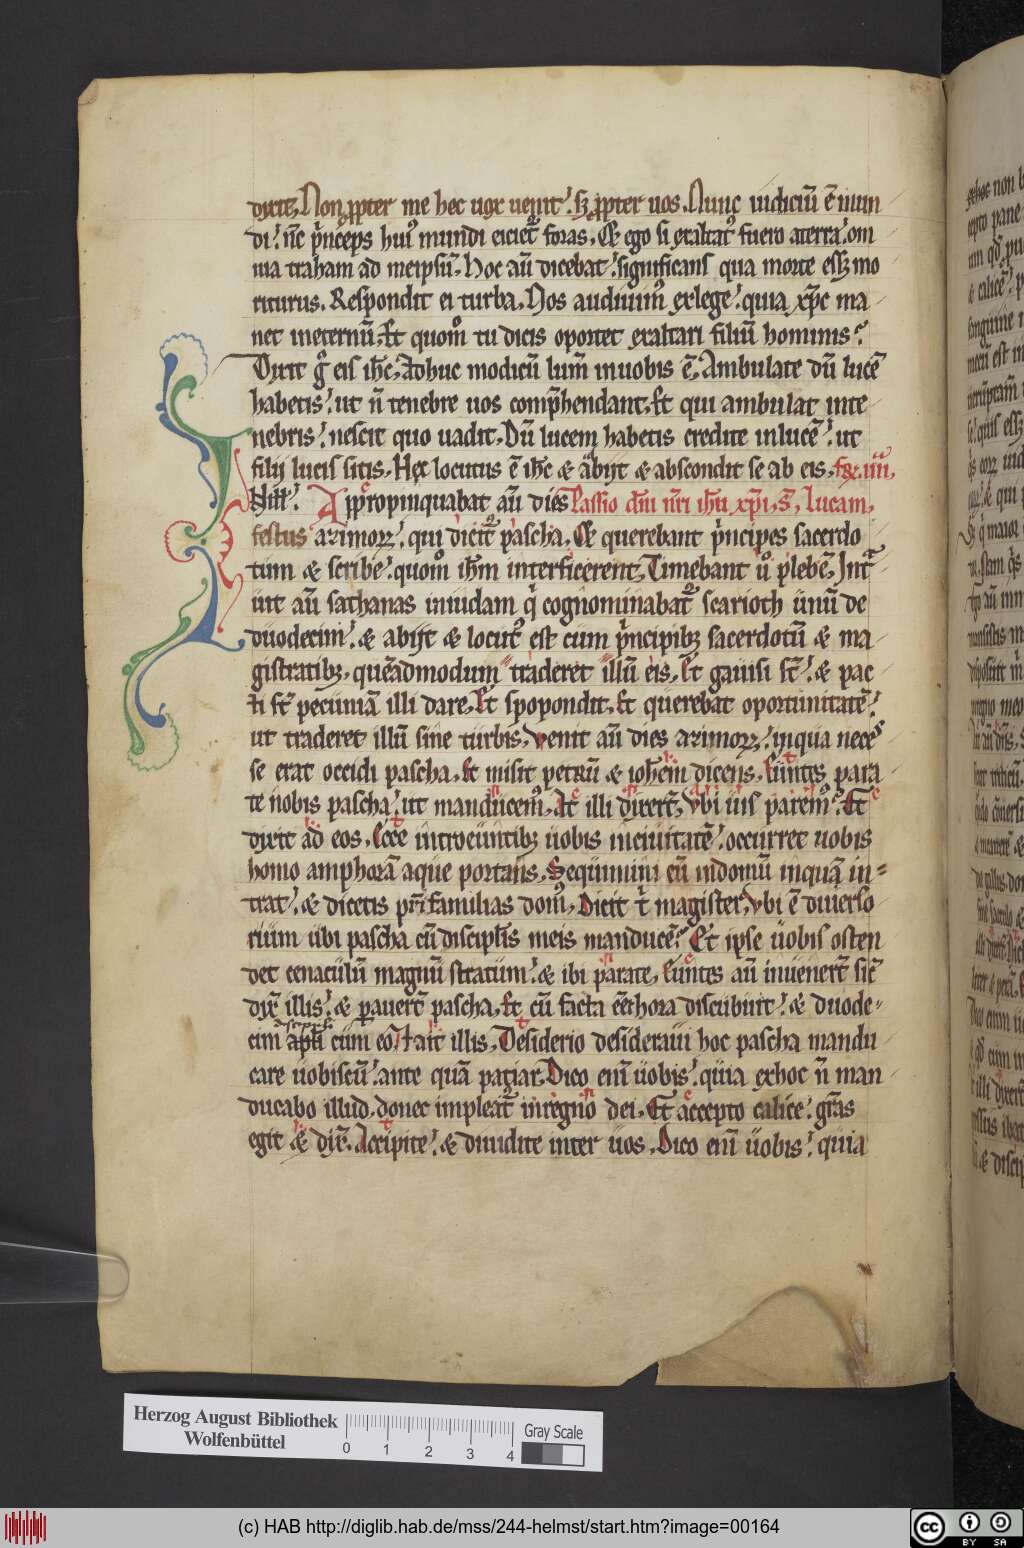 dixit. Non ꝓpter me hec uox uenit. sꝫ ꝓpter uos. Nunc iudiciū ē mun
di. nc̄ p̄nceps huiꝰ mundi eiciet᷑ foras. Et ego si exaltatꝰ fuero a terra. om
nia traham ad meipsū. Hoc aū dicebat. significans qua morte eēt mo
riturus. Respondit ei turba. Nos audiuimꝰ ex lege. quia xp̄c ma
net in eternū. Et quom̊ tu dicis oportet exaltari filiū hominis.
Dixit gͦ eis ih̄c. Adhuc modicū lum̄ in uobis ē. Ambulate dū lucē
habetis. ut n̄ tenebre uos comp̄hendant. Et qui ambulat in te
nebris. nescit quo uadit. Dū lucem habetis credite in lucē. ut
filij lucis sitis. Hec locutus ē ih̄c & abijt & abscondit se ab eis. fer. iiii.
In ill'. Appropinquabat aū dies Passio dn̄i nr̄i ih̄u xp̄i. s'. Lucam.
festus azimoꝝ. qui dicit᷑ pascha. Et querebant p̄ncipes sacerdo
tum & scribe. quom̊ ih̄m interficerent. Timebant ů plebē. Int᷑
uit aū sathanas in iudam q̇ cognominabat᷑ scarioth unū de
duodecim. & abijt & locutꝰ est cum p̄ncipibꝫ sacerdotū & ma
gistratibꝫ. quēadmodum traderet illū eis. Et gauisi st̄. & pac
ti st̄ pecuniā illi dare. Et spopondit. Et querebat oportunitatē.
ut traderet illū sine turbis. Venit aū dies azimoꝝ. in qua neces
se erat occidi pascha. Et misit petrū & ioh̄em dicens. Euntes para
te nobis pascha. ut manducemꝰ. At illi dixert̄. Vbi uis paremꝰ. Et
dixit ad eos. Ecce introeuntibꝫ uobis in ciuitatē. occurret uobis
homo amphorā aque portans. Sequimini eū in domū in quā in=
trat. & dicetis patri familias domꝰ. Dicit t̄ magister. Vbi ē diuerso
rium ubi pascha cū discipl'is meis manducē. Et ipse uobis osten
det cenaculū magnū stratum. & ibi parate. Euntes aū inuenert̄ sic̄
dix̄ illis. & ꝑauert̄ pascha. Et cū facta eēt hora discubuit. & duode=
cim apl'i cum eo. Et ait illis. Desiderio desideraui hoc pascha mandu
care uobiscū. ante quā patiar. Dico enī uobis. quia ex hoc n̄ man
ducabo illud. donec impleat᷑ in regno dei. Et accepto calice. gr̄as
egit & dix̄. Accipite. & diuidite inter uos. Dico enī uobis. quia
Herzog August Bibliothek
Wolfenbüttel
0 1 2 3 4
Gray Scale
(c) HAB http://diglib.hab.de/mss/244-helmst/start.htm?image=00164
cc BY SA